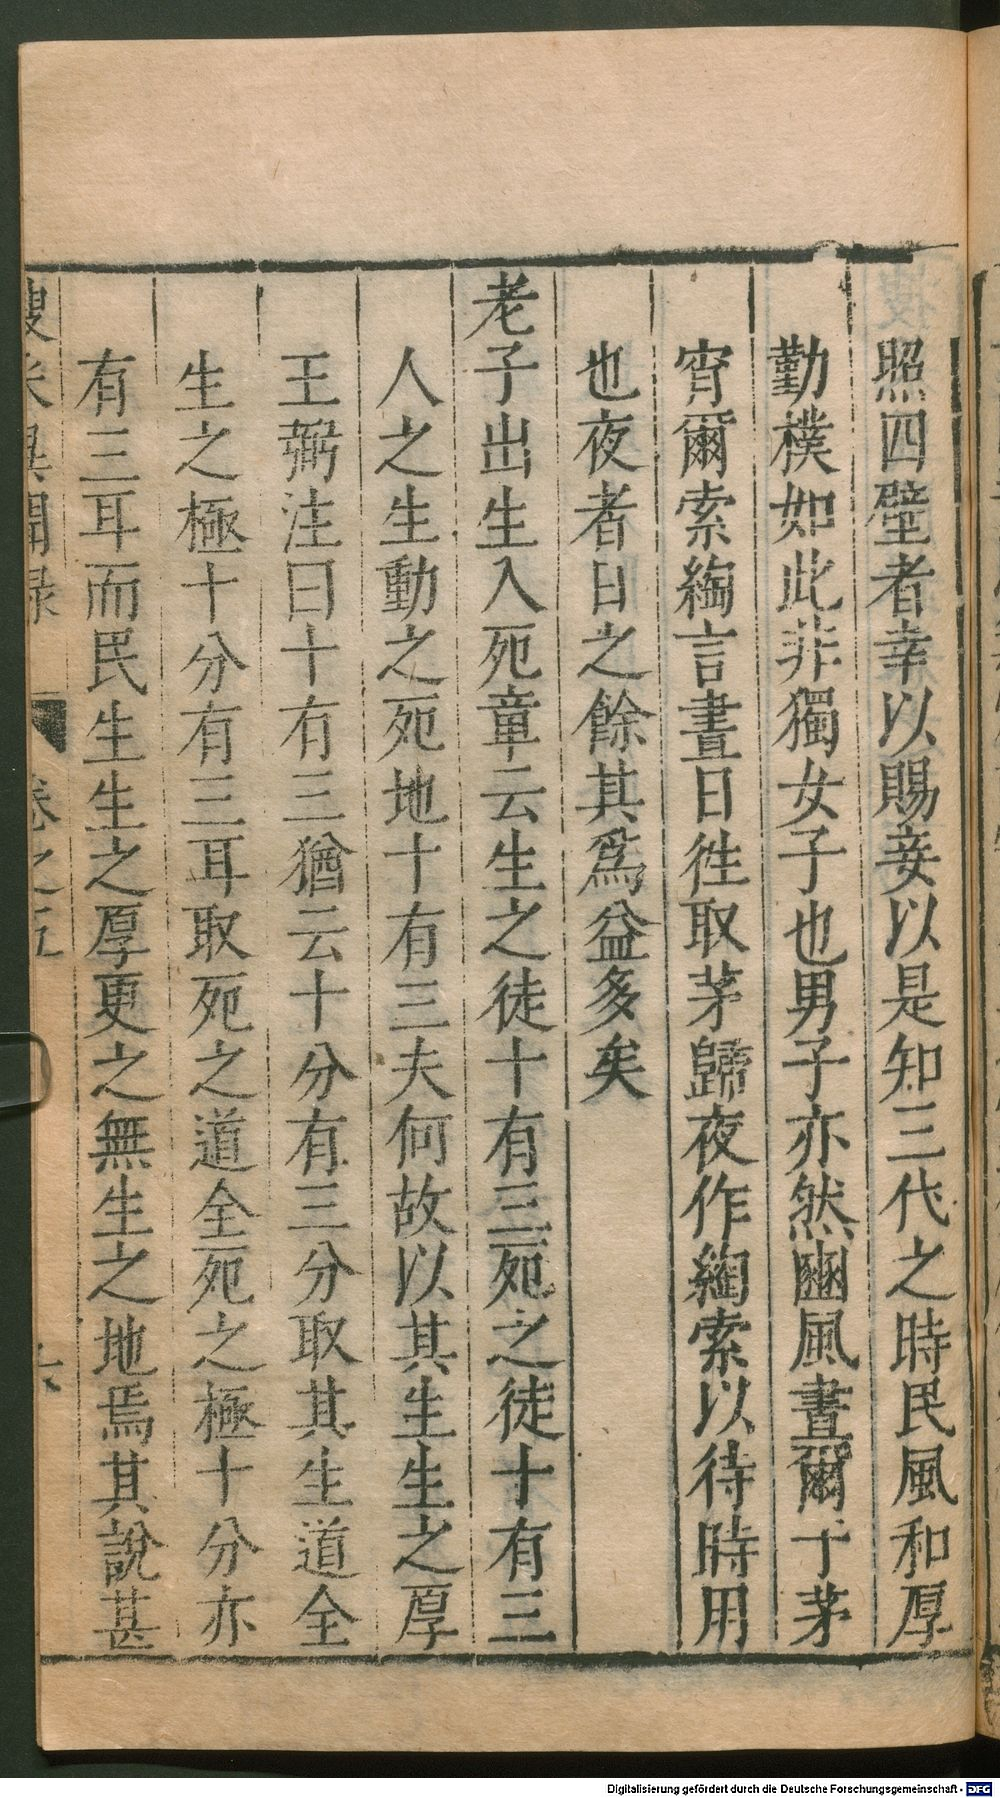 照四壁者幸以賜妾以是知三代之時民風和厚
勤樸如此非獨女子也男子亦然豳風晝爾于茅
宵爾索綯言晝日徃取茅歸夜作綯索以待時用
也夜者日之餘其爲益多矣
老子出生入死章云生之徒十有三死之徒十有三
人之生動之死地十有三夫何故以其生生之厚
王弼注曰十有三猶云十分有三分取其生道全
生之極十分有三耳取死之道全死之極十分亦
有三耳而民生生之厚更之無生之地焉其說甚
搜采異聞録 卷之五 六
Digitalisierung gefördert durch die Deutsche Forschungsgemeinschaft - DFG